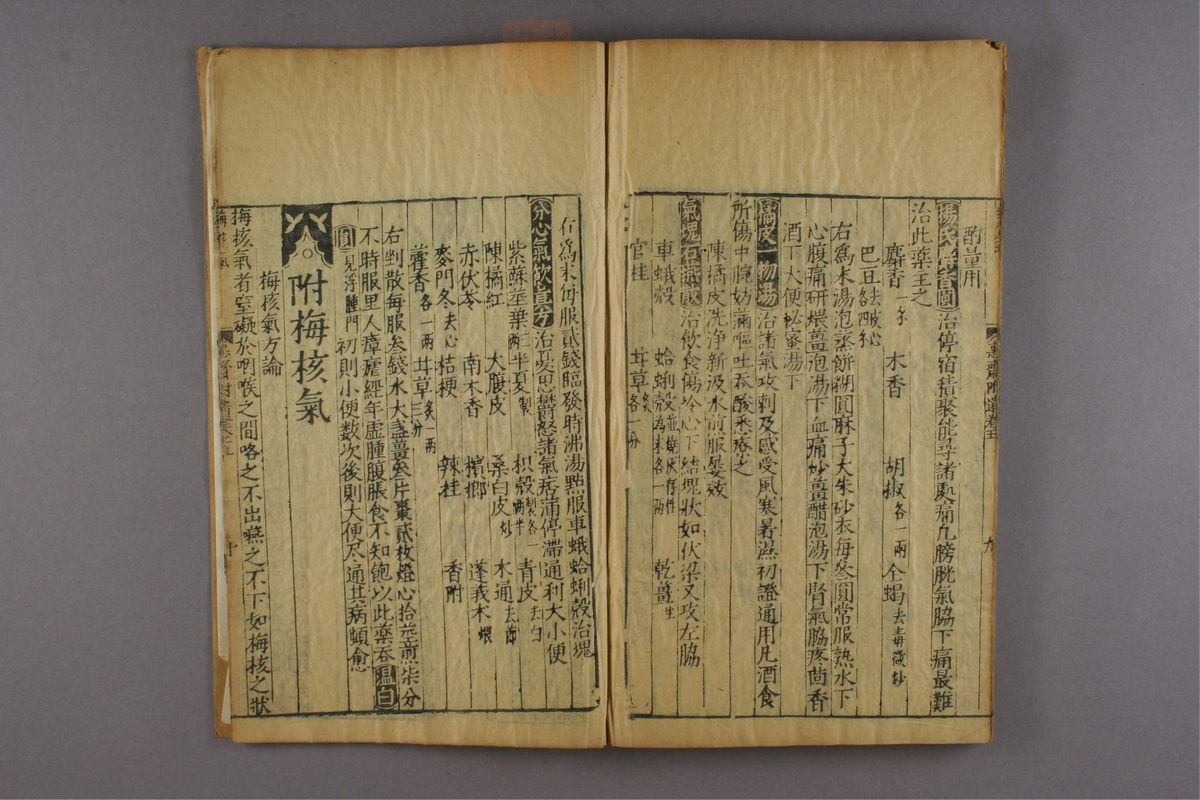 酌量用
楊氏麝香圓治停宿積聚能導諸處痛凡膀胱氣脇下痛最難
治此藥主之
麝香一錢 木香 胡椒各一兩 全蝎去毒微炒
巴豆去皮心
右爲末湯泡蒸餅糊圓麻子大朱砂衣每叁圓常服熟水下
心腹痛研煨薑泡湯下血痛炒薑醋泡湯下腎氣脇疼茴香
酒下大便祕蜜湯下
橘皮一物湯治諸氣攻刺及感受風寒暑濕初證通用凡酒食
所傷中脘妨滿嘔吐吞酸悉療之
陳橘皮洗淨新汲水煎服屢效
氣塊治飲食傷冷心下結塊狀如伏梁又攻左脇
車蛾殼 蛤蜊殼並燒灰存性爲末各一兩 乾薑生
官桂 甘草炙各一分
右爲末每服貳錢臨發時沸湯點服車蛾蛤蜊殼治塊
分心氣飲真方治憂思鬱怒諸氣痞滿停滯通利大小便
紫蘇莖葉三兩 半夏製 枳殼製各一兩半 青皮去白
陳橘紅 大腹皮 桑白皮炒 木通去節
赤伏苓 南木香 檳榔 蓬莪朮煨
麥門冬去心 桔梗 辣桂 香附
藿香各一兩 甘草炙一兩三分
右剉散每服叁錢水大盞薑叁片棗貳枚燈心拾莖煎柒分
不時服里人瘴瘧經年虛腫腹脹食不知飽以此藥吞溫白
圓見浮腫門初則小便数次後則大便尽通其病頓愈
附梅核氣
梅核氣方論
梅核氣者窒礙於咽喉之間咯之不出嚥之不下如梅核之狀
梅核氣
十
九